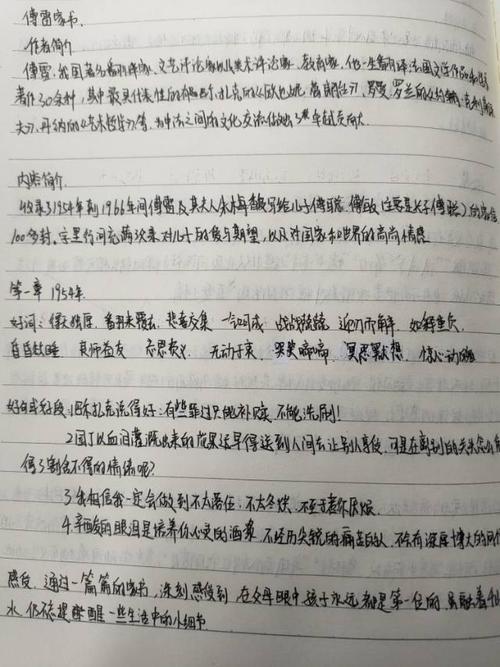 傅雷家书.
作者简介
傅雷,我国著名翻译家,文艺评论家以及美术评论家,教育家,他一生翻译法国文学作品和
著作30余种,其中最具代表性的有巴尔扎克的《欧也妮·葛朗台》,罗曼·罗兰的《约翰·克利斯
夫》,丹纳的《艺术哲学》等,为中法之间的文化交流做出了卓越贡献.
内容简介.
收录了1954年到1966年间傅雷及其夫人朱梅馥写给儿子傅聪、傅敏(主要是长子傅聪)的家信
100多封.字里行间充满次来对儿子的爱与期望,以及对国家和世界的高尚情感
第一章 1954年.
好词:得天独厚. 翻来覆去. 悲喜交集 一气呵成 战战兢兢 迎刃而解. 如释重负.
昏昏欲睡 良师益友 忘恩负义. 无动于衷. 哭哭啼啼. 冥思默想. 惊心动魄
好句或好段:1.巴尔扎克说得好:有些罪过只能补赎,不能洗刷!
2.园丁以血泪灌溉出来的成果迟早得送到人间去让别人享受,可是在离别的关头怎么
得了割舍不得的情绪呢?
3.我相信我一定会做到不太落伍,不太冬烘,不至于惹你厌烦.
4.辛酸的眼泪是培养你心灵的酒浆,不经历尖锐的痛苦的人,不会有深厚博大的同情
感受,通过一篇篇的家书,深刻感受到,在父母眼中,孩子永远都是第一位的,
水,仍不忘提醒一些生活中的小细节